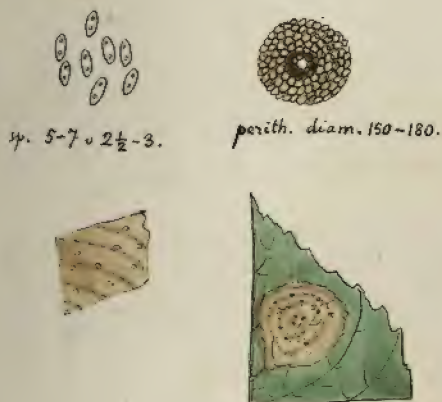 sp. 5-7 × 2½-3.
perith. diam. 150-180.